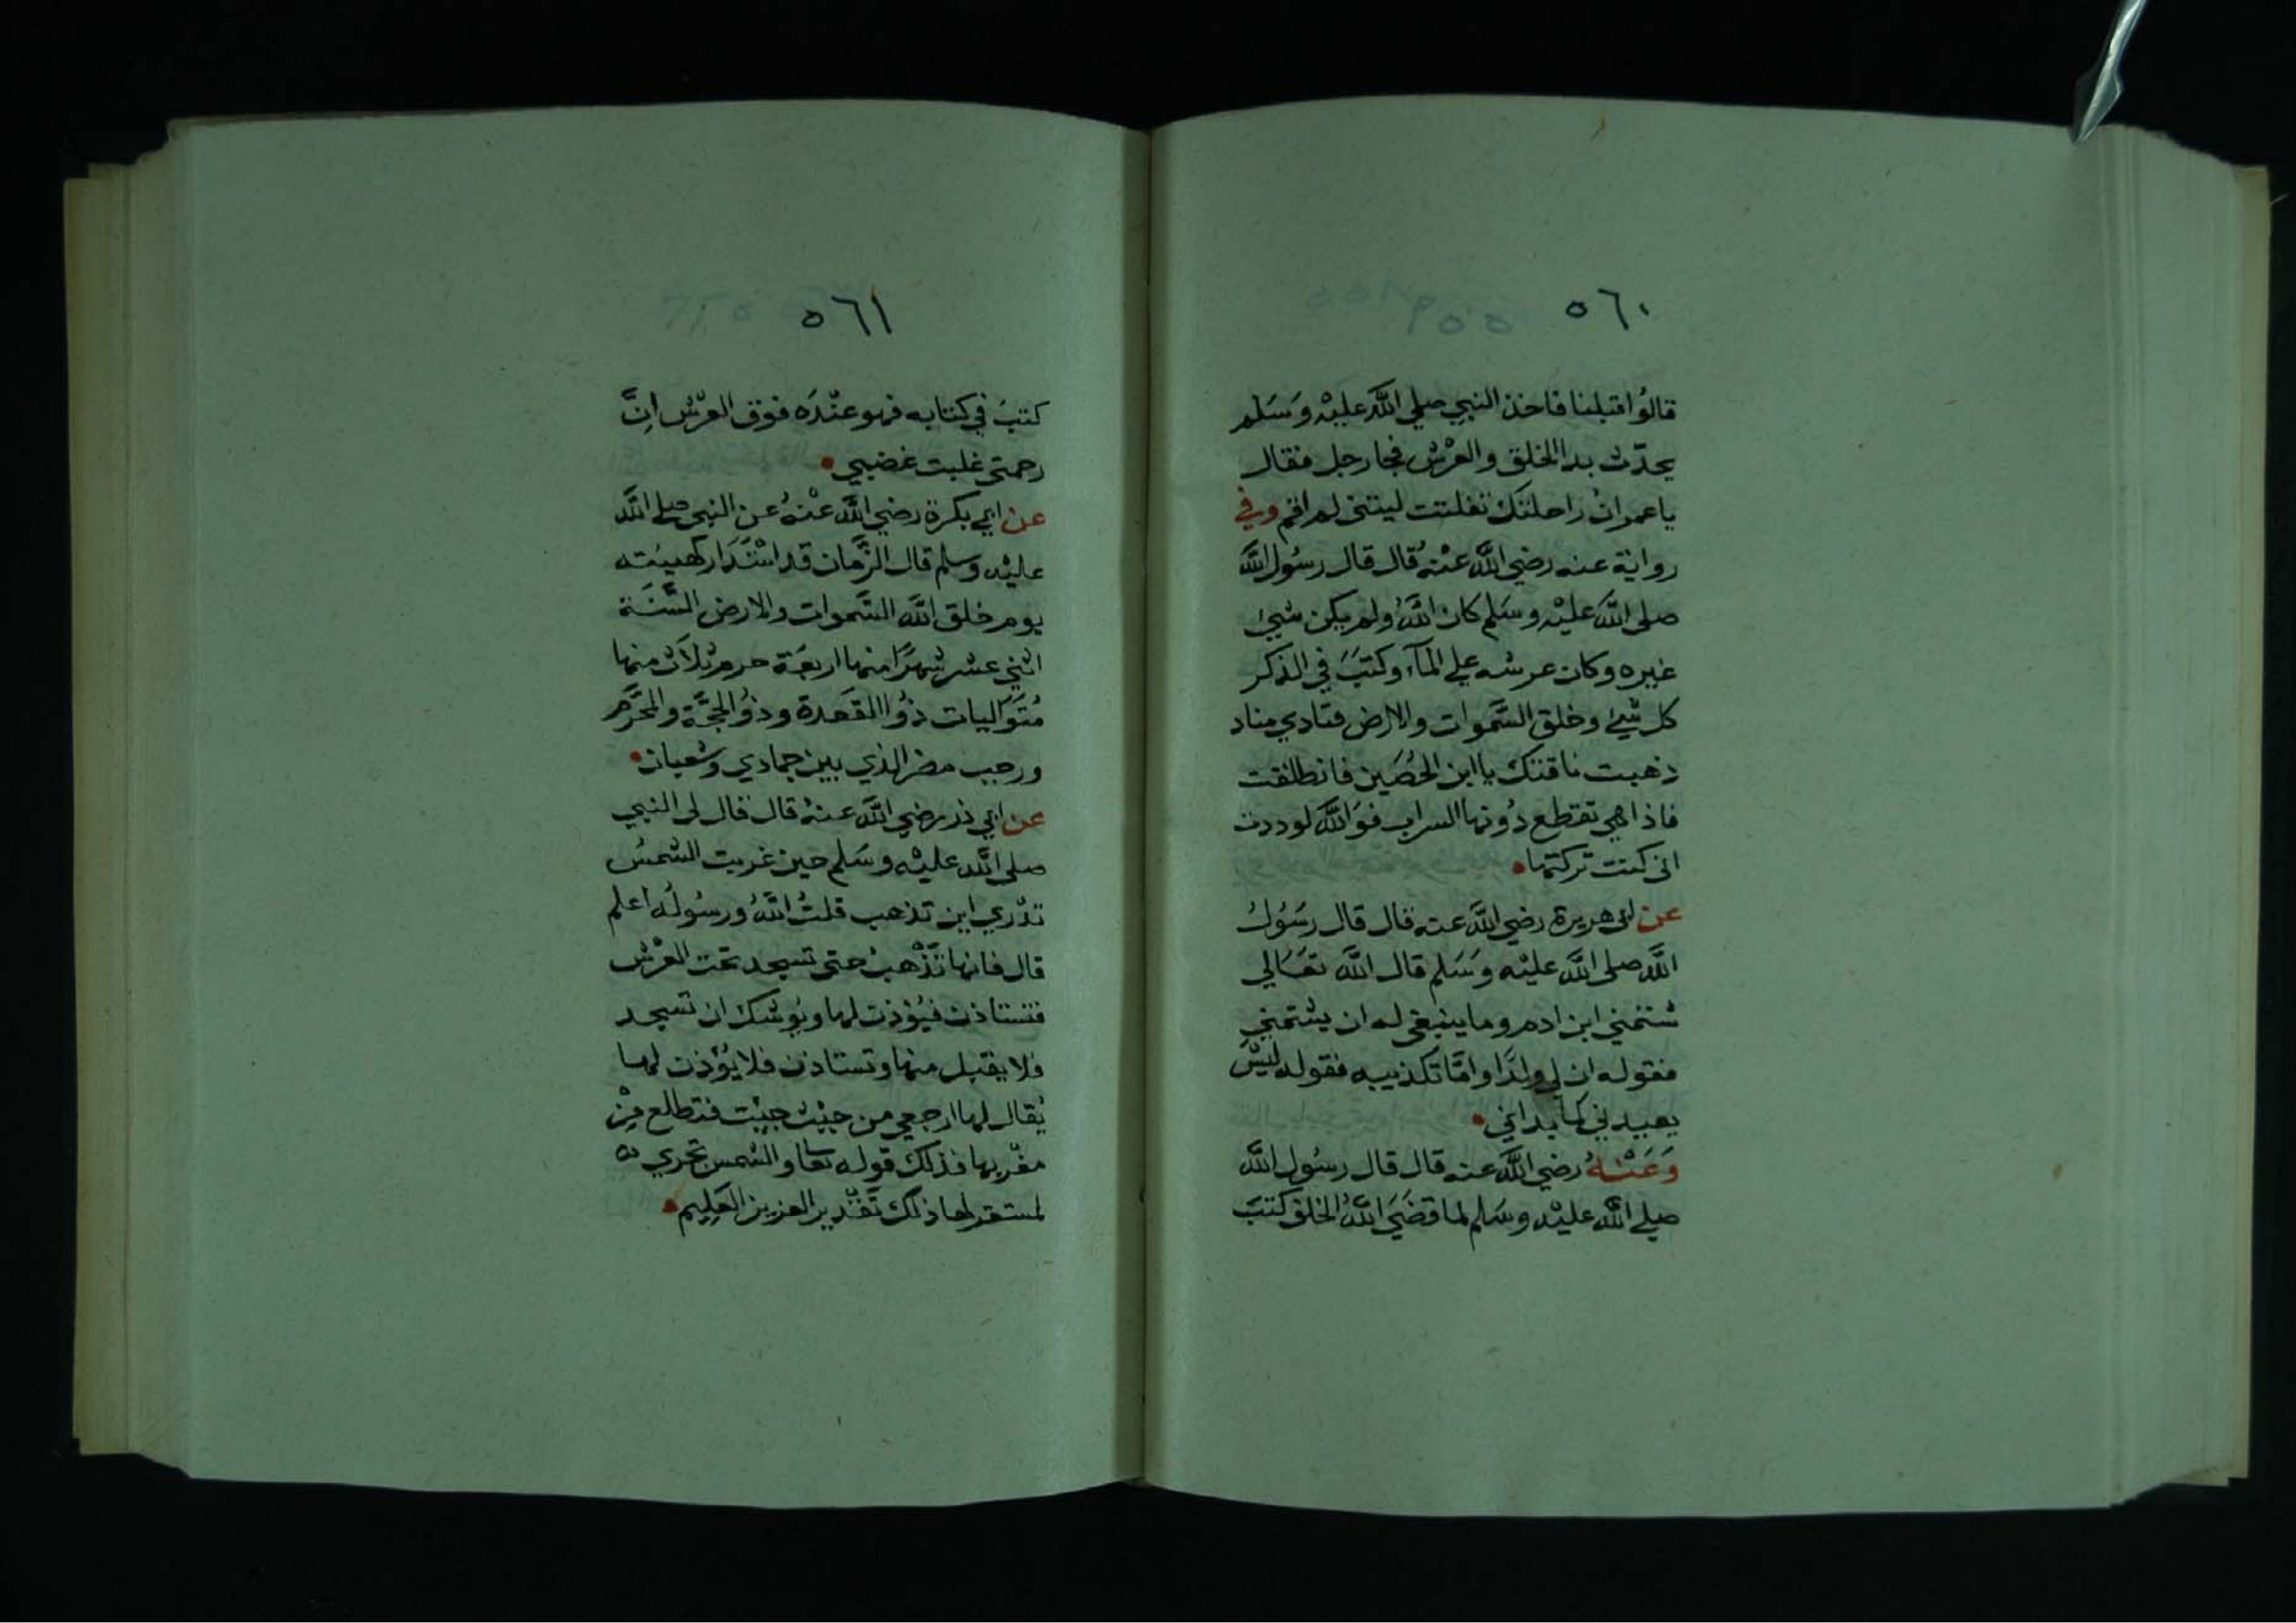 ٥٦٠
قالوُا قبلنا فاخذ النبي صلي اللَّه عليْه وَسَلم
يحدّث بدا الخلق والعرْش فجا رجل فقال
يا عمران راحلتك تفلتت ليتني لم اقم وفي
رواية عنه رضي اللَّه عنْه قال قال رسُول اللَّه
صلى اللَّه عليْه وسَلم كان اللَّهُ ولم يكن شيئ
غيره وكان عرشه علي المآء وكتبَ في الذكر
كل شيئ وخلق السَّموات والارض فنادي مناد
ذهبت ناقتك يا ابن الحُصَين فانطلقت
فاذا هي تقطع دُونها السراب فوَاللَّه لوددت
انى كنت تركتها
عن ابى هريرة رضي اللَّه عنه قال قال رسُولُ
اللَّه صلى اللَّه عليْه وسَلم قال اللَّه تعَالي
شتمني ابن ادم وما ينبغي له ان يشتمني
فقوله ان لي ولدًا وامَّا تكذيبه فقوله ليسَ
يعيدني كما بداني
وَعَنْهُ رضي اللَّه عنه قال قال رسُول اللَّه
صلي اللَّه عليْه وسَلم لما قضَي اللَّهُ الخلق كتبَ
٥٦١
كتبَ في كتابه فهو عنْدَه فوق العرْش اِنَّ
رحمتي غلبت غضبي
عن ابي بكرة رضي اللَّه عنْهُ عن النبي صلي اللَّه
عليْه وسلم قال الزَّمان قد اسْتَدَار كهيئته
يوم خلق اللَّه السَّموات والارض السَّنَة
اثني عشر شهرًا منها اربعَة حرم ثلاث منها
مُتَوَاليات ذوُا القَعدة وذوُ الحِجَّة والمحَرَّم
ورجب مضر الذي بين جمادي وشعبان
عن ابي ذر رضي اللَّه عنهُ قال قال لى النبي
صلى اللَّه عليْه وسَلم حين غربت الشمسُ
تدْري اين تذهب قلتُ اللَّهُ ورسُولُه اعلم
قال فانها تَذْهبُ حتى تسجد تحت العرْش
فتستاذن فيُؤذن لها ويُوشك ان تسجد
فلا يقبل منها وتستاذن فلا يُؤذن لها
يُقال لها ارجعي من حيْث جيْت فتطلع مِنْ
مغْربها فذلك قوله تعا والشمس تجري
لمستقر لها ذلك تَقْدير العزيز العَلِيم